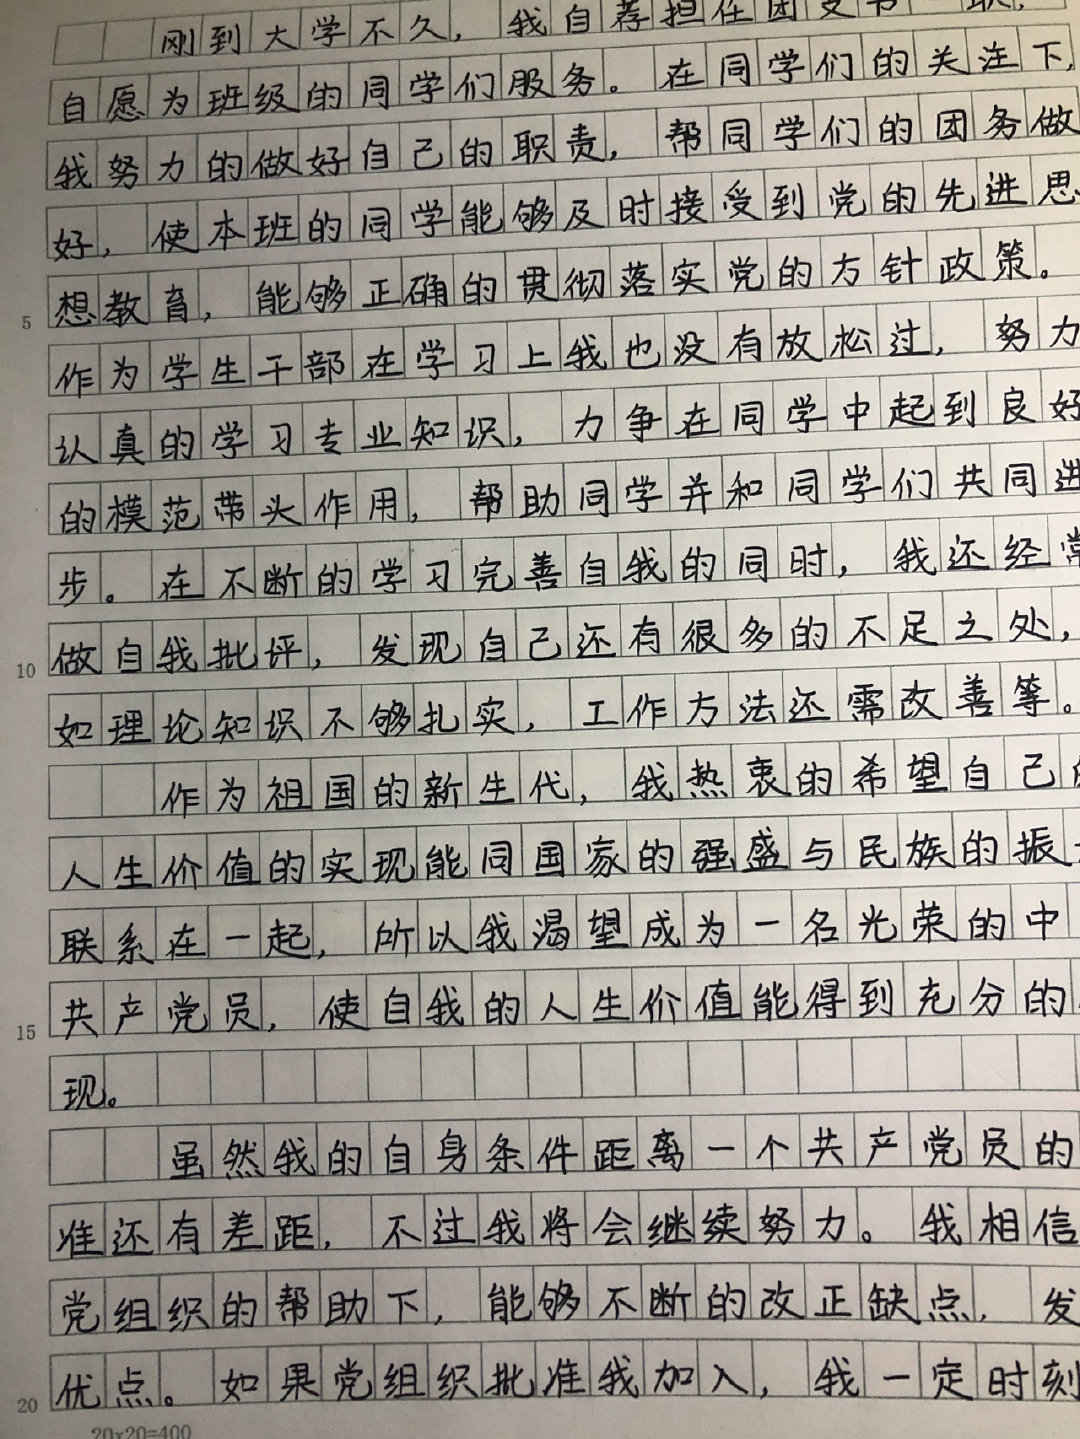 刚到大学不久，我自荐担任团支书一职，
自愿为班级的同学们服务。在同学们的关注下，
我努力的做好自己的职责，帮同学们的团务做
好，使本班的同学能够及时接受到党的先进思
想教育，能够正确的贯彻落实党的方针政策。
5
作为学生干部在学习上我也没有放松过，努力
认真的学习专业知识，力争在同学中起到良好
的模范带头作用，帮助同学并和同学们共同进
步。在不断的学习完善自我的同时，我还经常
做自我批评，发现自己还有很多的不足之处，
10
如理论知识不够扎实，工作方法还需改善等。
作为祖国的新生代，我热衷的希望自己的
人生价值的实现能同国家的强盛与民族的振
联系在一起，所以我渴望成为一名光荣的中
共产党员，使自我的人生价值能得到充分的
15
现。
虽然我的自身条件距离一个共产党员的
准还有差距，不过我将会继续努力。我相信
党组织的帮助下，能够不断的改正缺点，发
优点。如果党组织批准我加入，我一定时刻
20
20×20=400